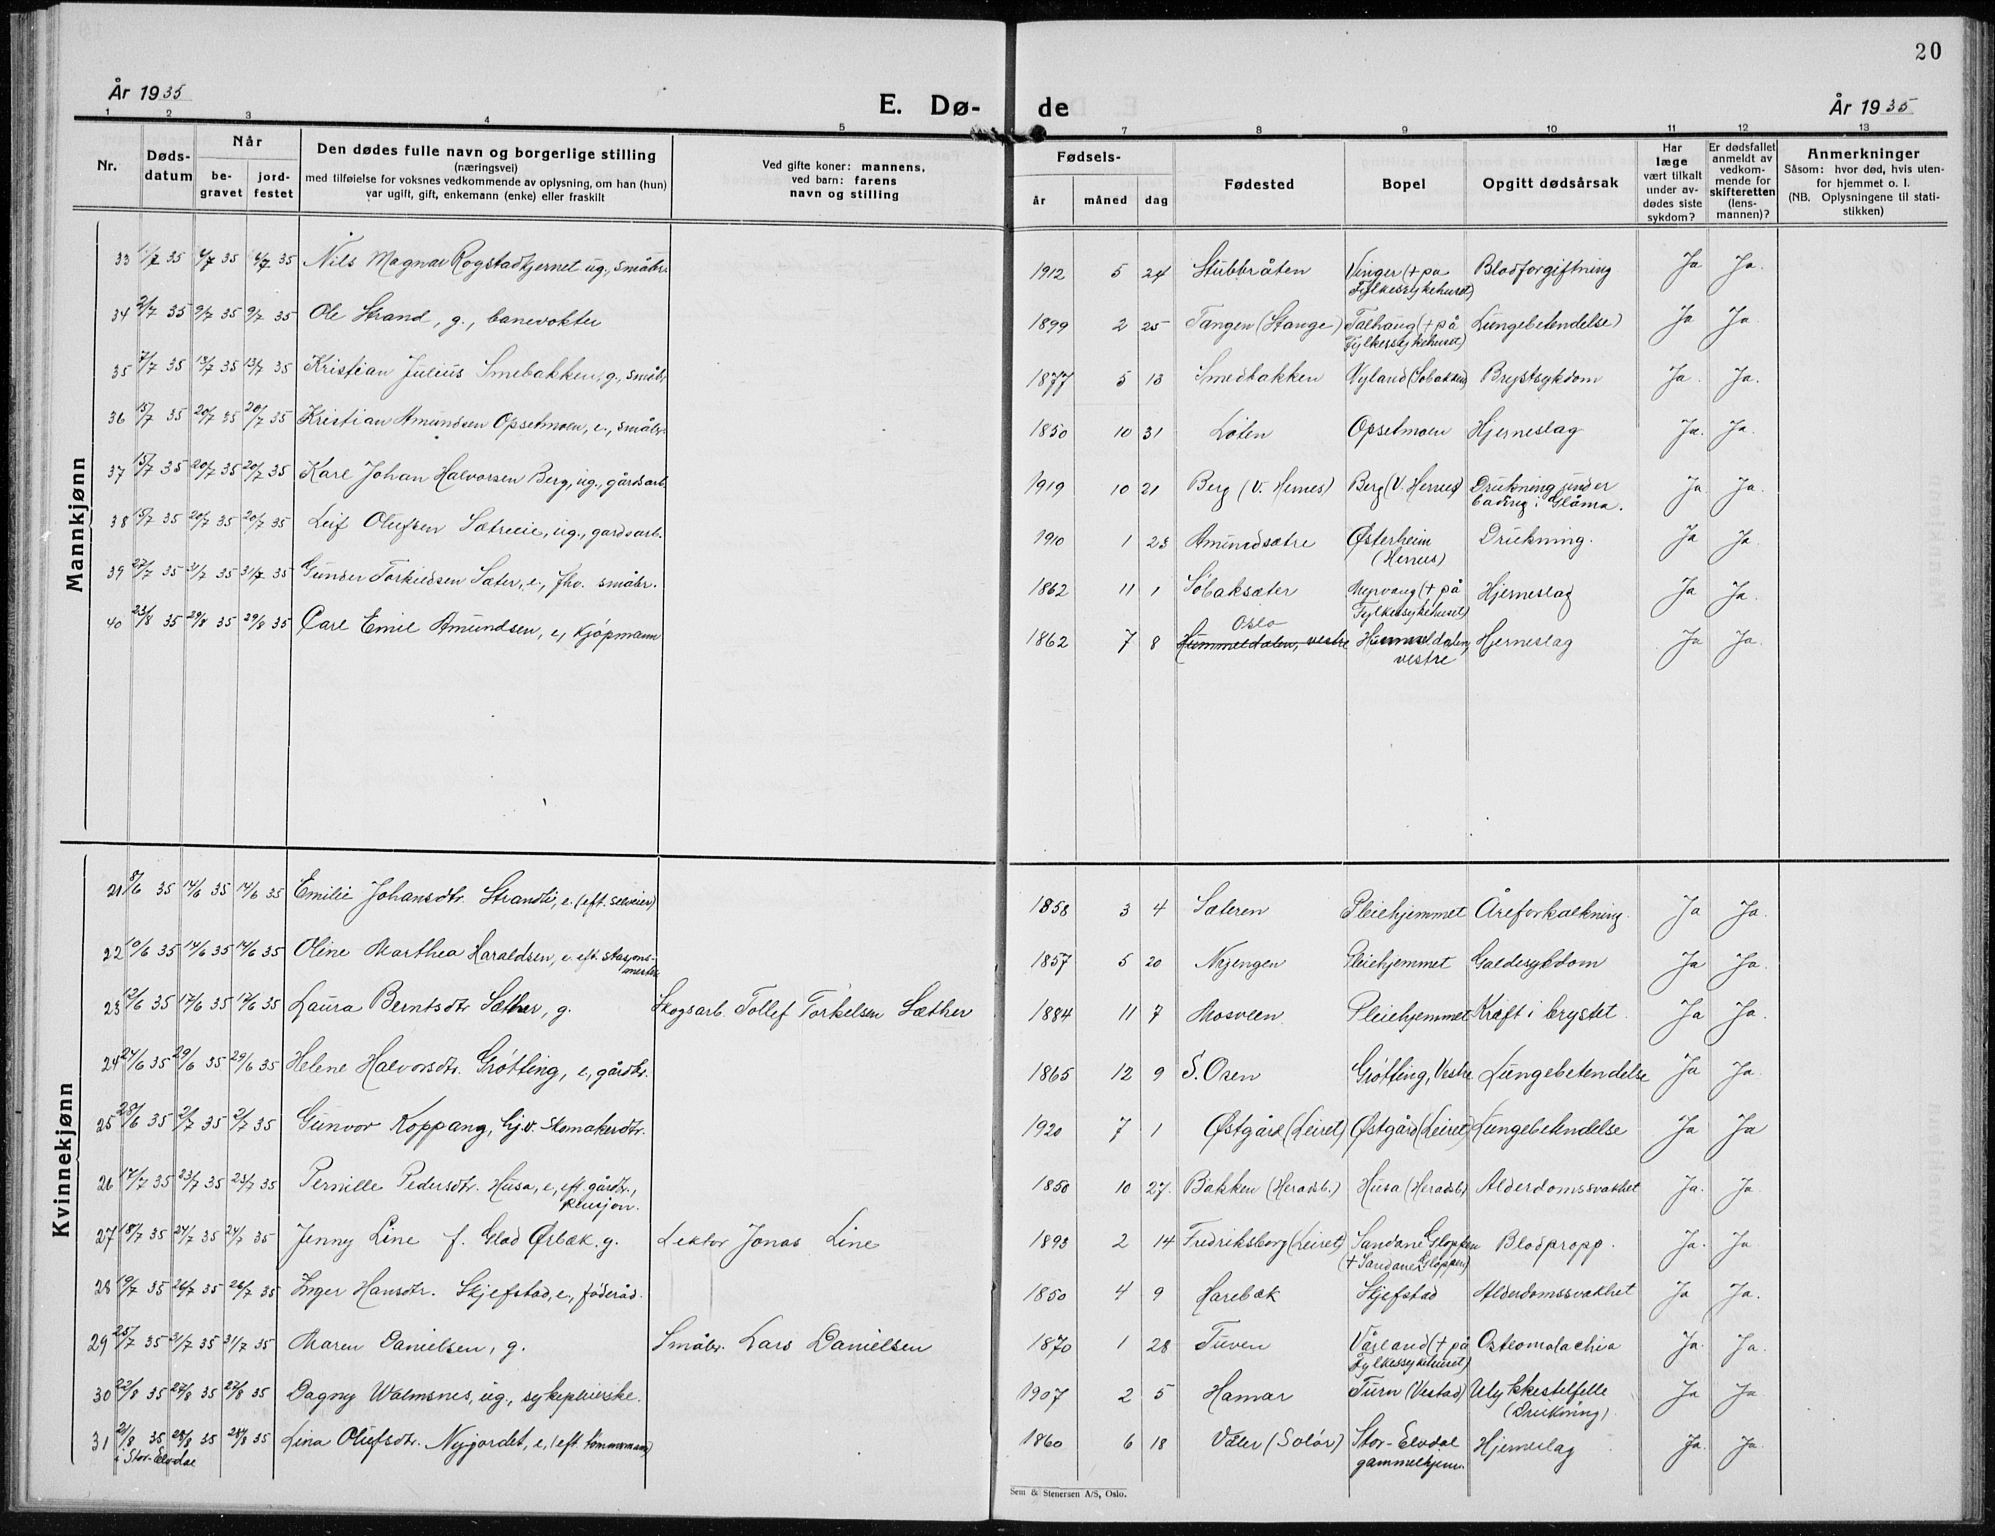 20
År 1935
E. Dø-
de
År 1935
1 2 3 4 5 7 8 9 10 11 12 13
Nr.
Døds-
datum
Når
be-
gravet
jord-
festet
Den dødes fulle navn og borgerlige stilling
(næringsvei)
med tilføielse for voksnes vedkommende av oplysning, om han (hun)
var ugift, gift, enkemann (enke) eller fraskilt
Ved gifte koner: mannens,
ved barn: farens
navn og stilling
Fødsels-
år
måned
dag
Fødested
Bopel
Opgitt dødsårsak
Har
læge
vært tilkalt
under av-
dødes siste
sykdom?
Er dødsfallet
anmeldt av
vedkom-
mende for
skifteretten
(lens-
mannen)?
Anmerkninger
Såsom: hvor død, hvis uten-
for hjemmet o. l.
(NB. Oplysningene til stati-
stikken)
Mannkjønn
33 1/7 35 6/7 35 6/7 35 Nils Magnar Rogstadkjernet ug., småbr. 1912 5 24 Stubbråten Vinger (+ pa Blodforgiftning Ja Ja.
Fylkessykehuset)
34 2/7 35 9/7 35 9/7 35 Ole Strand, g., banevokter 1899 2 25 Tangen (Stange) Talhaug (+ på Lungebetendelse) Ja Ja.
Fylkessykehuset)
35 7/7 35 13/7 35 13/7 35 Kristian Julius Smebakken, g., småbr. 1877 5 13 Smedbakken Nyland (Sobakken) Brystsykdom Ja. Ja.
36 15/7 35 20/7 35 20/7 35 Kristian Amundsen Opsetmoen, e., småbr. 1850 10 31 Løten Opsetmoen Hjerneslag Ja. Ja.
37 15/7 35 20/7 35 20/7 35 Karl Johan Halvorsen Berg, ug., gårdsarb. 1919 10 21 Berg (V. Hernes) Berg (V. Hernes) Drukning under Ja Ja.
bading i Glåma.
38 15/7 35 20/7 35 20/7 35 Leif Olufsen Sætreeie, ug., gardsarb. 1910 1 23 Amundsætre Østerheim Drukning. Ja Ja.
(Hernes)
39 27/7 35 31/7 35 31/7 35 Gunder Torkildsen Sæter, e., fhv. småbr. 1862 11 1 Søbaksæter Myrvang (+ på Hjerneslag Ja Ja.
Fylkessykehuset)
Oslo
40 23/8 35 29/8 35 29/8 35 Carl Emil Amundsen, e, kjøpmann 1862 7 8 Hummeldalen, vestre Hummeldalen, Hjerneslag Ja Ja.
vestre
Kvinnekjønn
21 8/6 35 14/6 35 14/6 35 Emilie Johansdtr. Strandli, e. (eft. selveier) 1858 3 4 Sæteren Pleiehjemmet Åreforkalkning. Ja Ja.
22 10/6 35 14/6 35 14/6 35 Oline Marthea Haraldsen, e. eft. stasjons- 1857 5 20 Nyjengen Pleiehjemmet Galdesykdom Ja Ja.
mester
23 12/6 35 17/6 35 17/6 35 Laura Berntsdtr Sæther, g. Skogsarb. Tollef Torkelsen Sæther 1884 11 7 Mosveen Pleiehjemmet Kræft i brystet. Ja Ja.
24 24/6 35 29/6 35 29/6 35 Helene Halvorsdtr. Grøtting, e., gårdbr. 1865 12 9 S. Osen Grøtting, Vestre Lungebetendelse Ja Ja.
25 28/6 35 2/7 35 2/7 35 Gunvor Koppang, hj.v. skomakerdtr. 1920 7 1 Østgård (Leiret) Østgård (Leiret) Lungebetendelse Ja Ja
26 17/7 35 23/7 35 23/7 35 Pernille Pedersdtr. Husa, e., eft. gårdbr., 1850 10 27. Bakken (Heradsb.) Husa (Heradsb) Alderdomssvakhet Ja. Ja
pensjon.
27 18/7 35 24/7 35 24/7 35 Jenny Line f. Glad Ørbæk. g. Lektor Jonas Line 1893 2 14 Fredriksborg (Leiret) Sandane Gloppen Blodpropp. Ja. Ja
(+ Sandane Gloppen)
28 19/7 35 26/7 35 26/7 35 Inger Hansdtr. Skjefstad, e., føderåd. 1850 4 9 Harebæk Skjefstad Alderdomssvakhet Ja Ja.
29 25/7 35 31/7 35 31/7 35 Maren Danielsen, g. Småbr. Lars Danielsen 1870 1 28 Tuven Vågland (+ på Osteomalachia Ja. Ja.
Fylkessykehuset)
30 22/8 35 27/8 35 27/8 35 Dagny Walmsnes, ug., sykepleierske. 1907 2 5 Hamar Turn (Vestad) Ulykkestilfelle Ja Ja.
(Drukning)
31 21/8 35 28/8 35 28/8 35 Lina Olufsdtr. Nyjordet, e, (eft. tømmermann) 1860 6 18 Våler (Solør) Stor-Elvdal Hjerneslag Ja. Ja.
i Stor-Elvdal gammelhjem.
Sem & Stenersen A/S, Oslo.